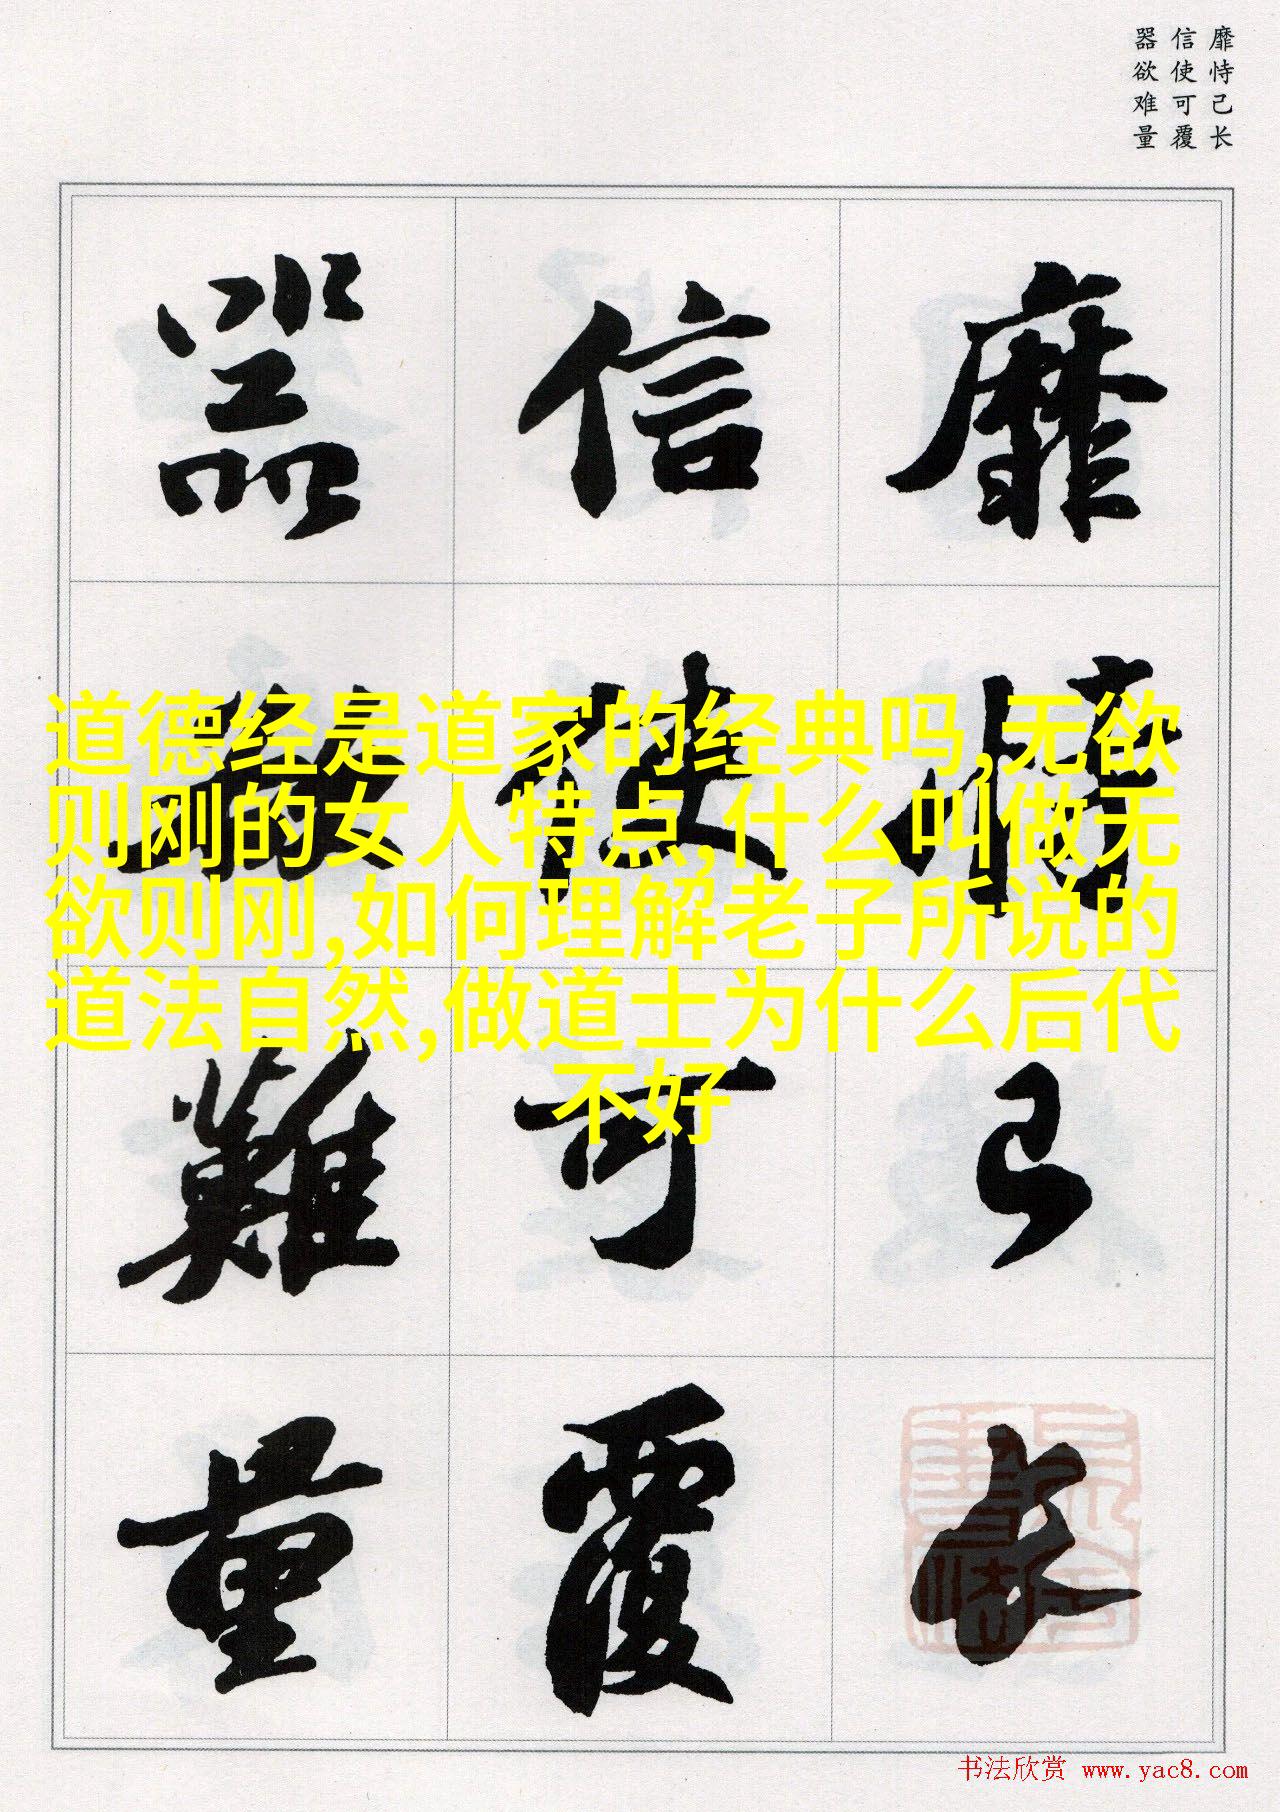 靡恃己长
信使可覆
器欲难量
靡恃己长
信使可覆
器欲難量
道德经是道家的经典吗,无欲
则刚的女人特点,什么叫做无
欲则刚,如何理解老子所说的
道法自然,做道士为什么后代
不好
书法欣赏 www.yac8.com